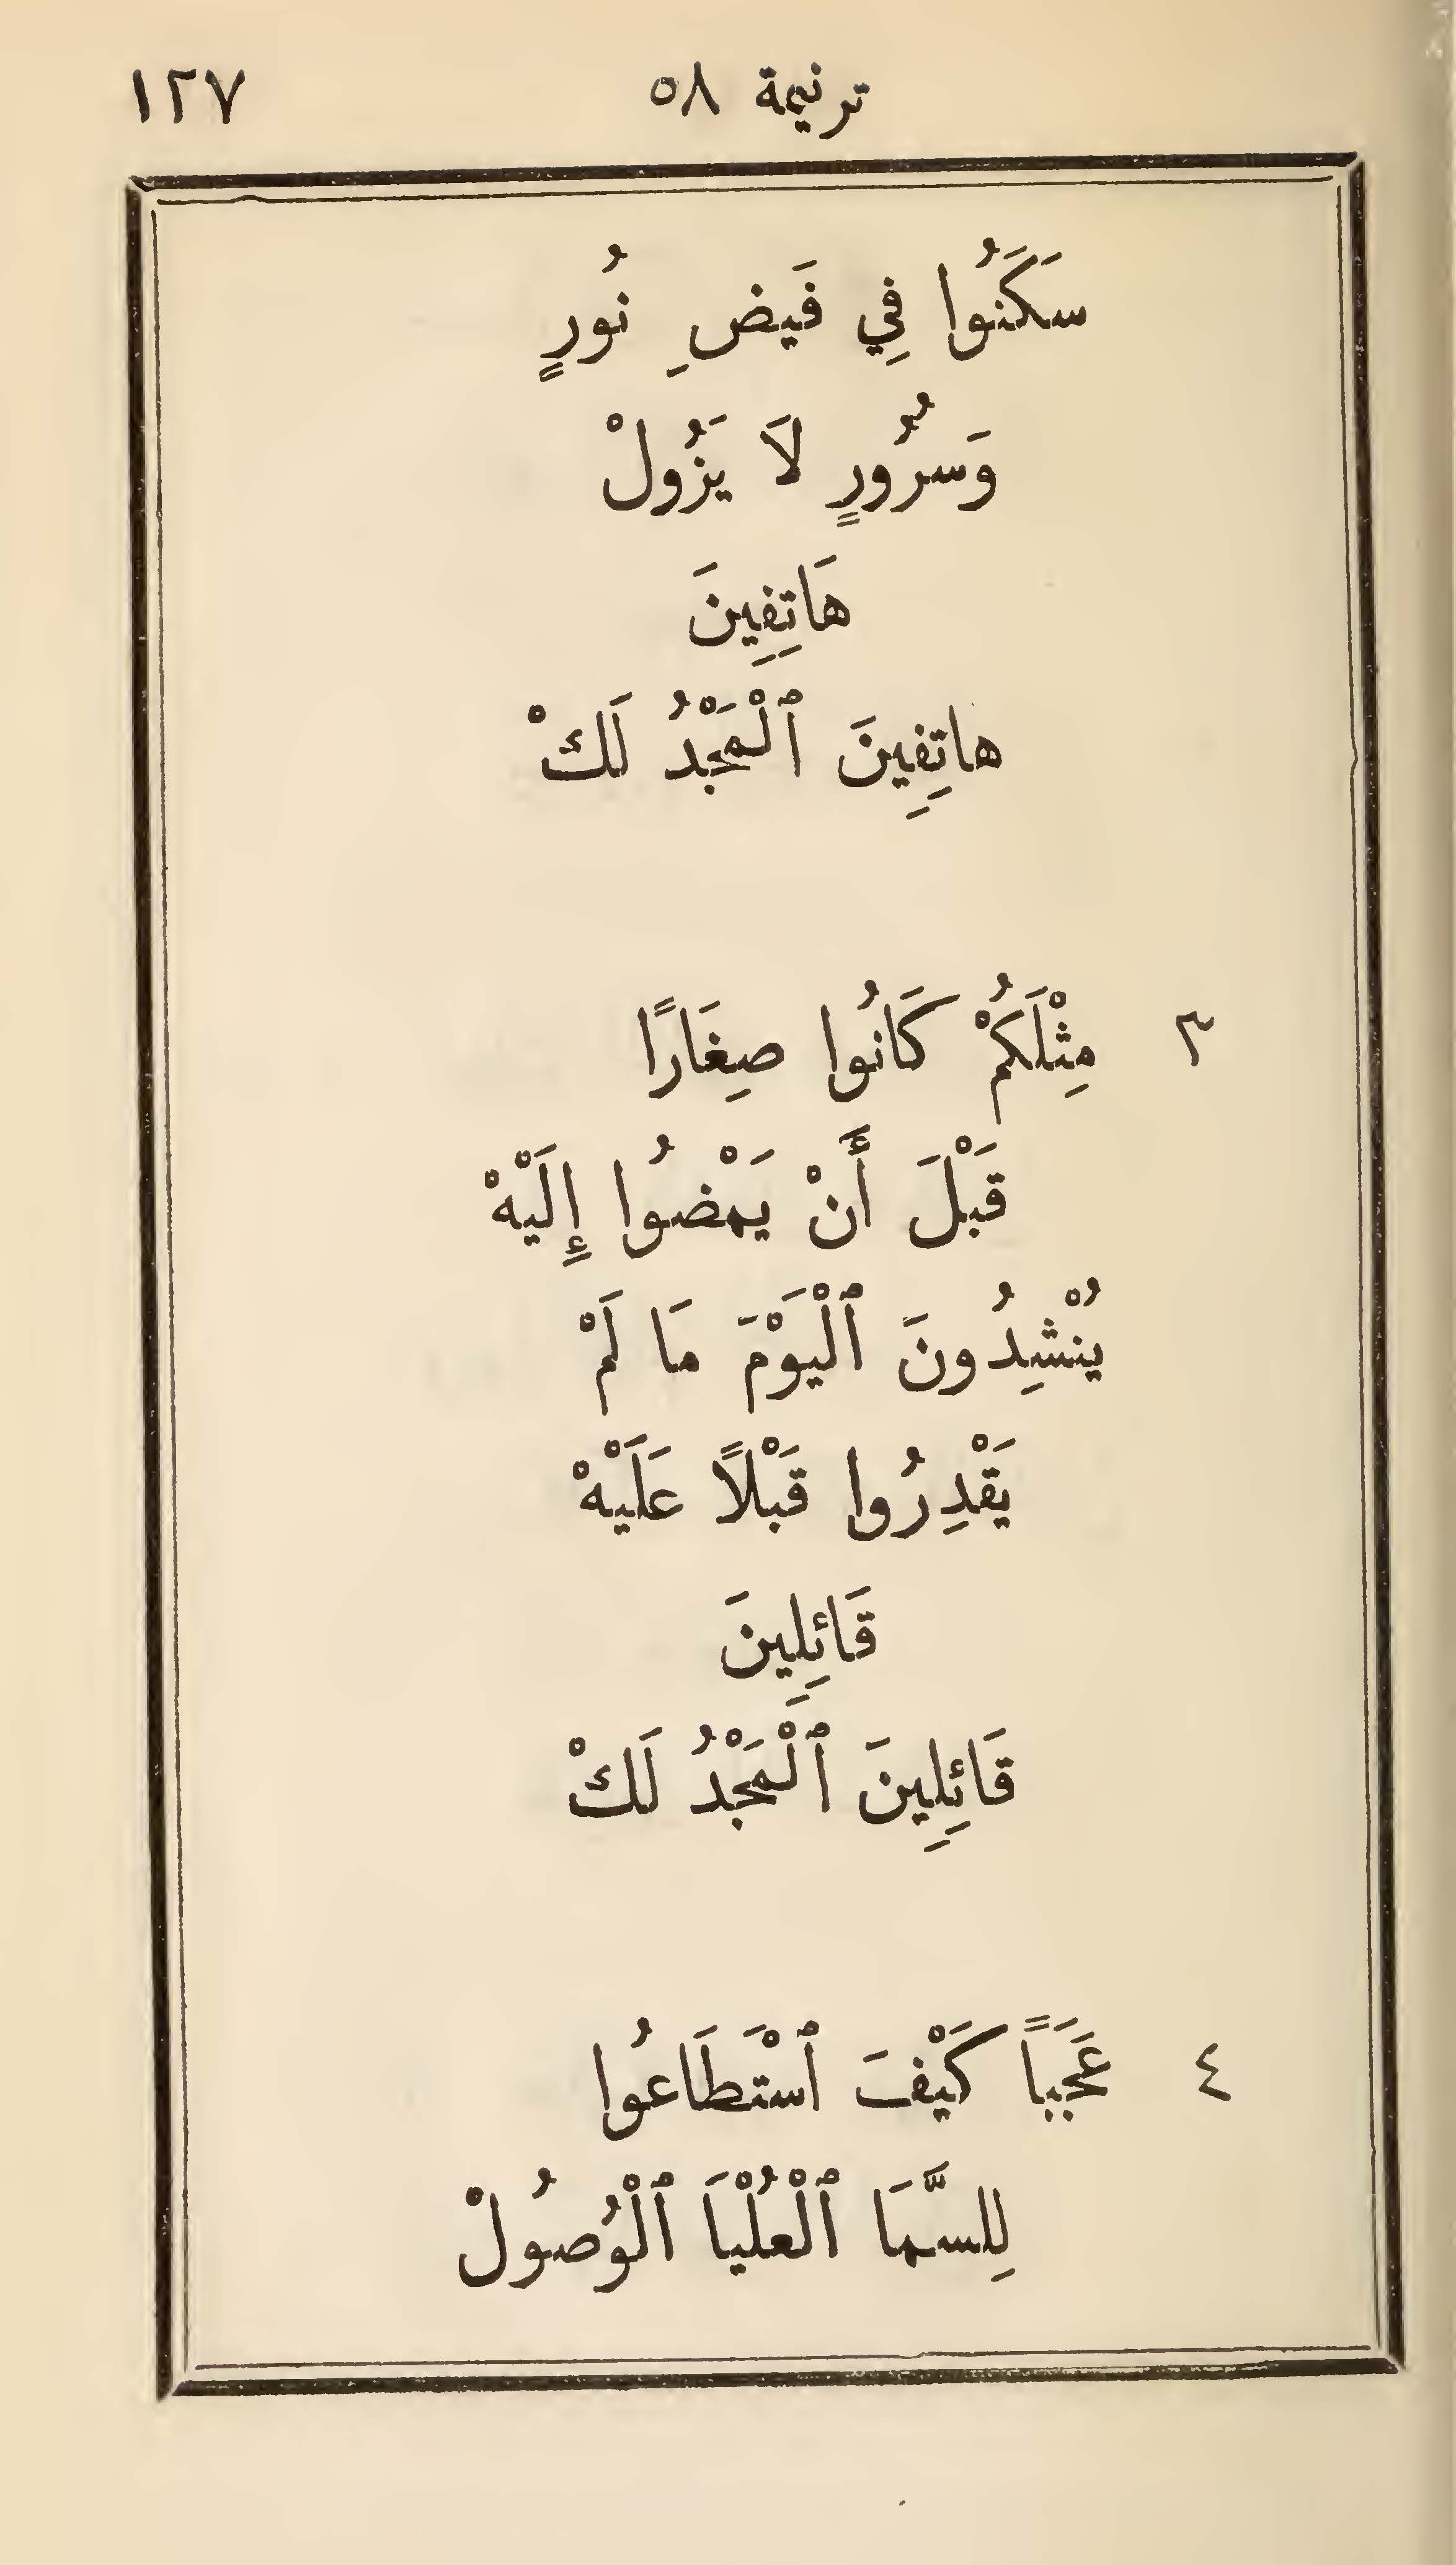 ترنيمة ٥٨ ١٢٧
سَكَنُوا فِي فَيضِ نُورٍ
وَسرُورٍ لَا يَزُولْ
هَاتِفِينَ
هاتِفِينَ ٱلْمَجْدُ لَكْ
٣ مِثْلَكُمْ كَانُوا صِغَارًا
قَبْلَ أَنْ يَمْضُوا إِلَيْهْ
يُنْشِدُونَ ٱلْيَوْمَ مَا لَمْ
يَقْدِرُوا قَبْلًا عَلَيْهْ
قَائِلِينَ
قَائِلِينَ ٱلْمَجْدُ لَكْ
٤ عَجَبًا كَيْفَ ٱسْتَطَاعُوا
لِلسَّمَا ٱلْعُلْيَا ٱلْوُصُولْ